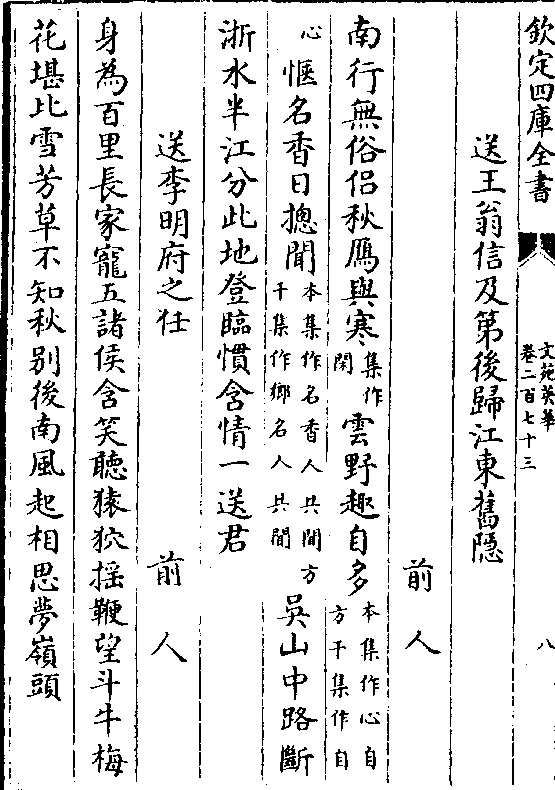 欽定四庫全書
文苑英華
卷二百七十三
八
送王翁信及第後歸江東舊隠
前人
南行無俗侶秋鴈與寒集作閑雲野趣自多本集作心自方干集作自
心愜名香日摠聞本集作名香人共聞方干集作鄉名人共聞吳山中路斷
浙水半江分此地登臨慣含情一送君
送李明府之任
前人
身為百里長家寵五諸侯含笑聽猿狖揺鞭望斗牛梅
花堪比雪芳草不知秋别後南風起相思夢嶺頭